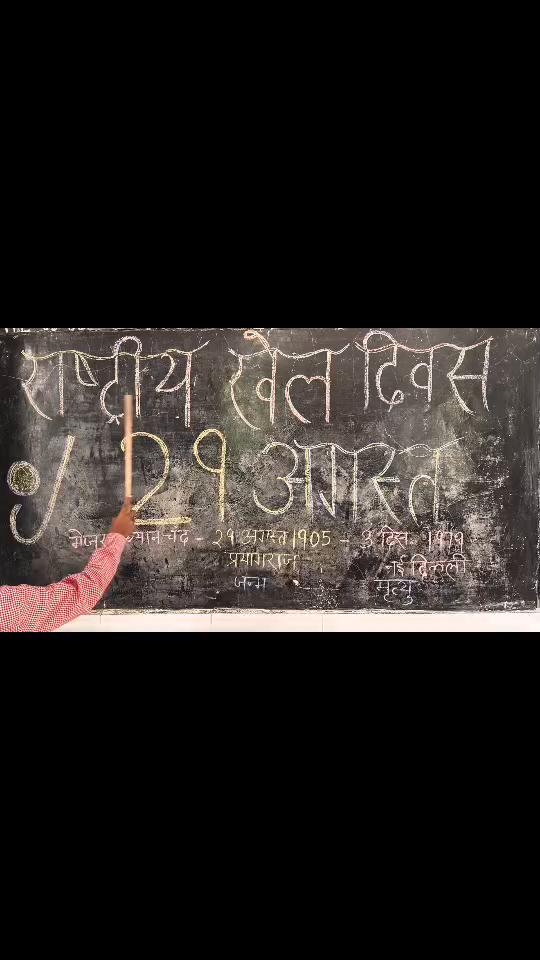 राष्ट्रीय खेल दिवस
29 अगस्त
मेजर ध्यान चंद - 29 अगस्त 1905 - 3 दिस. 1979
प्रयागराज नई दिल्ली
जन्म मृत्यु